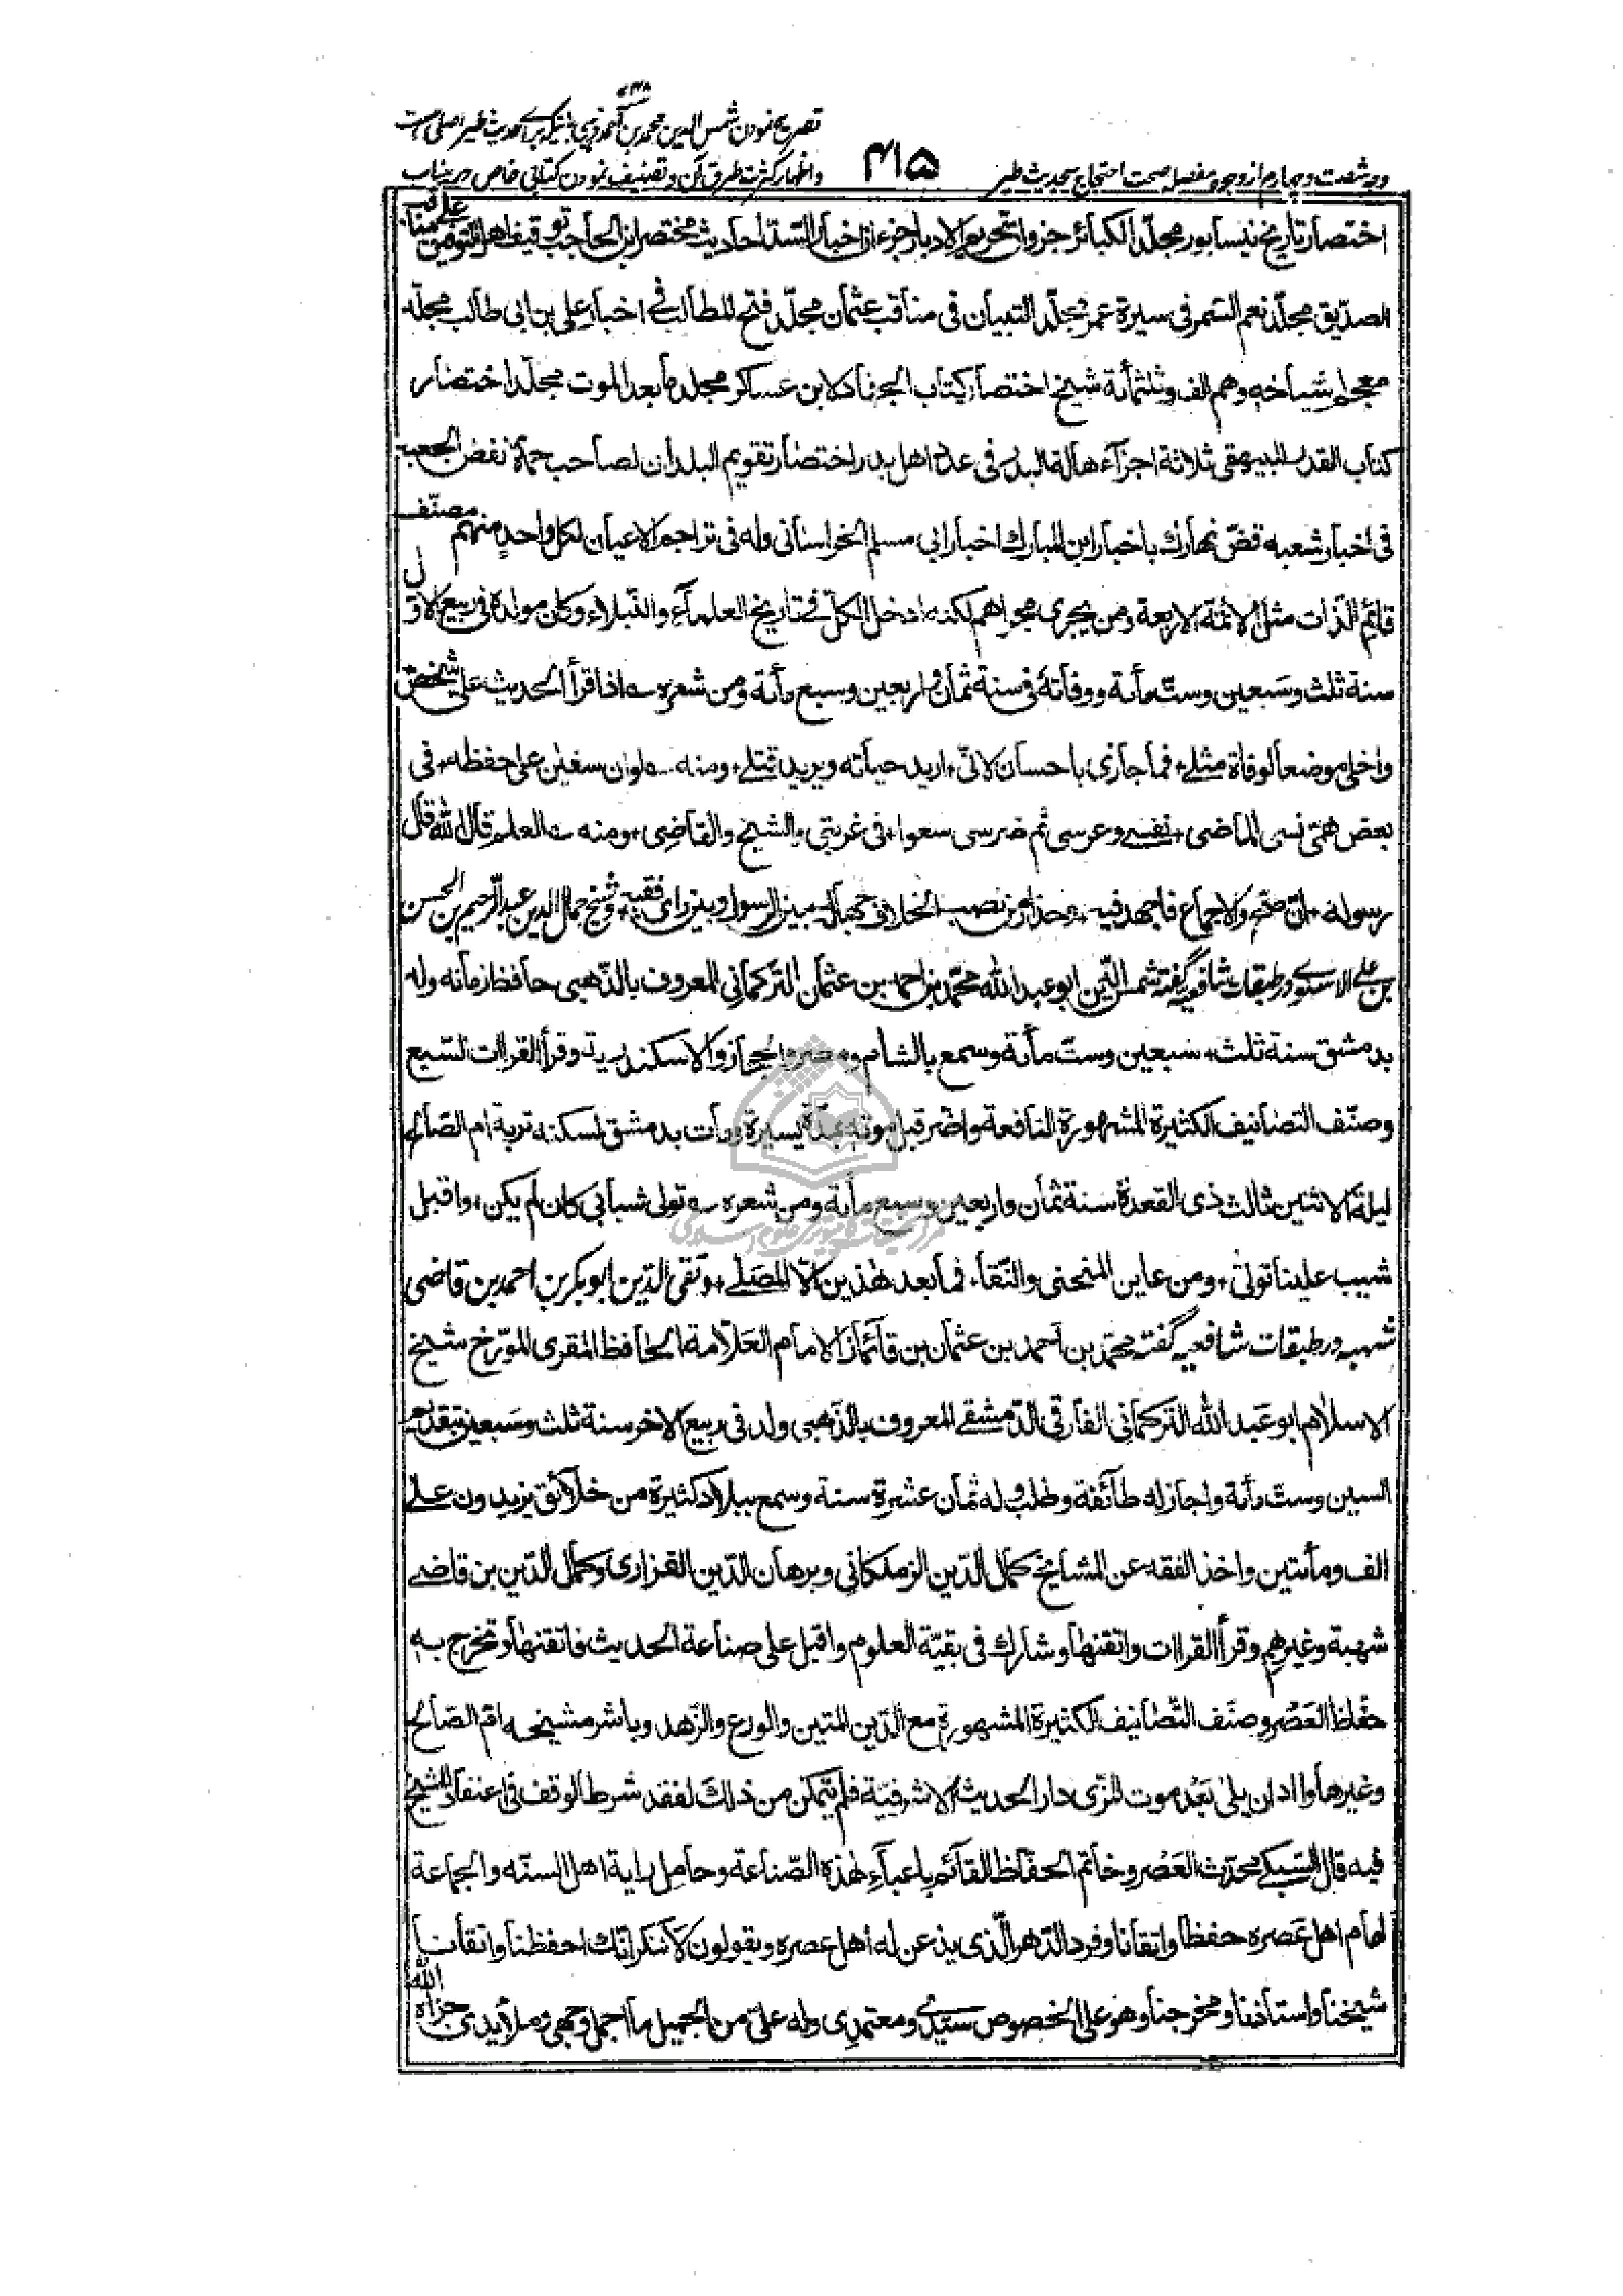 وجه شصت و چهارم از وجوه مفصله صحت احتجاج بحدیث طیر
۴۱۵
تصریح نمودن شمس الدین محمد بن احمد ذهبی باینکه برای حدیث طیر اصلی است
و اظهار کثرت طرق آن و تصنیف نمودن کتابی خاص درین باب
اختصار تاریخ نیسابور مجلد الکبائر جزوان تحریم الادبار جزء ان اخبار السد احادیث مختصر ابن الحاجب توقیف اهل التوفیق علی مناقب
الصدّیق مجلّد نعم السّمر فی سیرة عمر مجلّد التبیان فی مناقب عثمان مجلّد فتح المطالب فی اخبار علی بن ابی طالب مجلد
معجم اشیاخه وهم الف وثلثمائة شیخ اختصار کتاب الجهاد لابن عساکر مجلد ما بعد الموت مجلّد اختصار
کتاب القدر للبیهقی ثلاثة اجزآء هالة البدر فی عدد اهل بدر اختصار تقویم البلدان لصاحب حماة نفض الجعبه
فی اخبار شعبه قضّ نهارک باخبار ابن المبارک اخبار ابی مسلم الخراسانی وله فی تراجم الاعیان لکل واحدٍ منهم مصنّف
قائم الذّات مثل الائمّة الاربعة ومن یجری مجراهم لکنه ادخل الکلّ فی تاریخ العلمآء والنّبلاء وکان مولده فی ربیع الاوّل
سنة ثلث وسبعین وستّ مأئة ووفاته فی سنة ثمان واربعین وسبع مأئة ومن شعره اذا قرأ الحدیث علیّ شخص
واخلی موضعا لوفاة مثلی فما جازی باحسان لانّی ارید حیاته ویرید قتلی ومنه لو ان سفین علی حفظه فی
بعض همّی نسی الماضی نفسی وعرسی ثم ضرسی سعوا فی غربتی والشیخ والقاضی ومنه العلم قال الله قال
رسوله ان صحّ والاجماع فاجهد فیه وحذار من نصب الخلاف جهالة بین الرسول وبین رای فقیه وشیخ جمال الدین عبد الرّحیم بن الحسن
بن علی الاسنوی در طبقات شافعیه گفته شمس الدّین ابو عبد الله محمّد بن احمد بن عثمان الترکمانی المعروف بالذّهبی حافظ زمانه ولد
بدمشق سنة ثلث وسبعین وستّ مأئة وسمع بالشام ومصر والحجاز والاسکندریة وقرأ القراات السّبع
وصنّف التصانیف الکثیرة المشهورة النافعة واضر قبل موته بمدّة یسیرة ومات بدمشق لسکنه تربة ام الصّالح
لیلة الاثنین ثالث ذی القعدة سنة ثمان واربعین وسبع مأئة ومن شعره تولی شبابی کان لم یکن واقبل
شیب علینا تولّی ومن عاین المنحنی والنّقا فما بعد هٰذین الّا المصلّی وتقی الدّین ابو بکر بن احمد بن قاضی
شهبه در طبقات شافعیه گفته محمّد بن احمد بن عثمان بن قائماز الامام العلّامة الحافظ المقری المورّخ شیخ
الاسلام ابو عبد الله الترکمانی الفارقی الدّمشقی المعروف بالذّهبی ولد فی ربیع الاخر سنة ثلث وسبعین بتقدیم
السین وستّ مأئة واجاز له طآئفة وطلب وله ثمان عشرة سنة وسمع ببلاد کثیرة من خلآئق یزیدون علی
الف ومأئتین واخذ الفقه عن المشایخ کمال الدّین الزملکانی وبرهان الدّین الفزاری وکمال الدّین بن قاضی
شهبة وغیرهم وقرأ القراات واتقنها وشارک فی بقیّة العلوم واقبل علی صناعة الحدیث فاتقنها وتخرج به
حفّاظ العَصر وصنّف التّصانیف الکثیرة المشهورة مع الدّین المتین والورع والزّهد وباشر مشیخه ام الصّالح
وغیرها واراد ان یلی بَعْد موت المزّی دار الحدیث الاشرفیّة فلم یتمکن من ذلک لفقد شرط الوقف فی اعتقاد الشیخ
فیه قال السّبکی محدّث العَصر وخاتم الحفّاظ القآئم باعبآء هٰذه الصّناعة وحامل رایة اهل السنّه والجماعة
امام اهل عَصره حفظا واتقانا وفرد الدّهر الّذی یذعن له أهل عصره ویقولون لا ننکر انّک احفظنا واتقانا
شیخنا واستاذنا ومخرجنا وهو علی الخصوص سیّدی ومعتمدی وله علیّ من الجمیل ما اجمل وجهی وملأ یدی جزاه الله